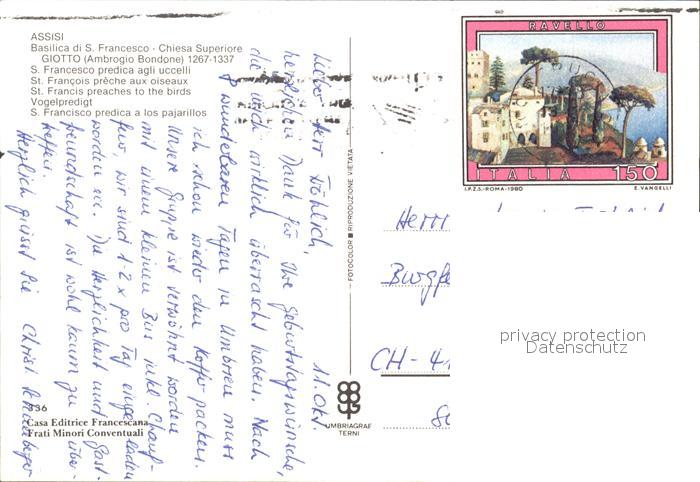 ASSISI
Basilica di S. Francesco - Chiesa Superiore
GIOTTO (Ambrogio Bondone) 1267-1337
S. Francesco predica agli uccelli
St. François prêche aux oiseaux
St. Francis preaches to the birds
Vogelpredigt
S. Francisco predica a los pajarillos
11. Okt.
Lieber Herr Fröhlich,
herzlichen Dank für Ihre Geburtstagswünsche,
die mich wirklich überrascht haben. Nach
8 wunderbaren Tagen in Umbrien muss
ich schon wieder den Koffer packen.
Unsere Gruppe ist verwöhnt worden
mit einem kleinen Bus inkl. Chauf-
feur, wir sind 1-2 x pro Tag eingeladen
worden etc. Die Herzlichkeit und Gast-
freundschaft ist wohl kaum zu über-
treffen.
Herzlich grüsst Sie Christ
336
Casa Editrice Francescana
Frati Minori Conventuali
FOTOCOLOR ■ RIPRODUZIONE VIETATA
UMBRIAGRAF
TERNI
RAVELLO
ITALIA 150
I.P.Z.S.-ROMA-1980 E. VANGELLI
Herrn
CH-41
privacy protection
Datenschutz